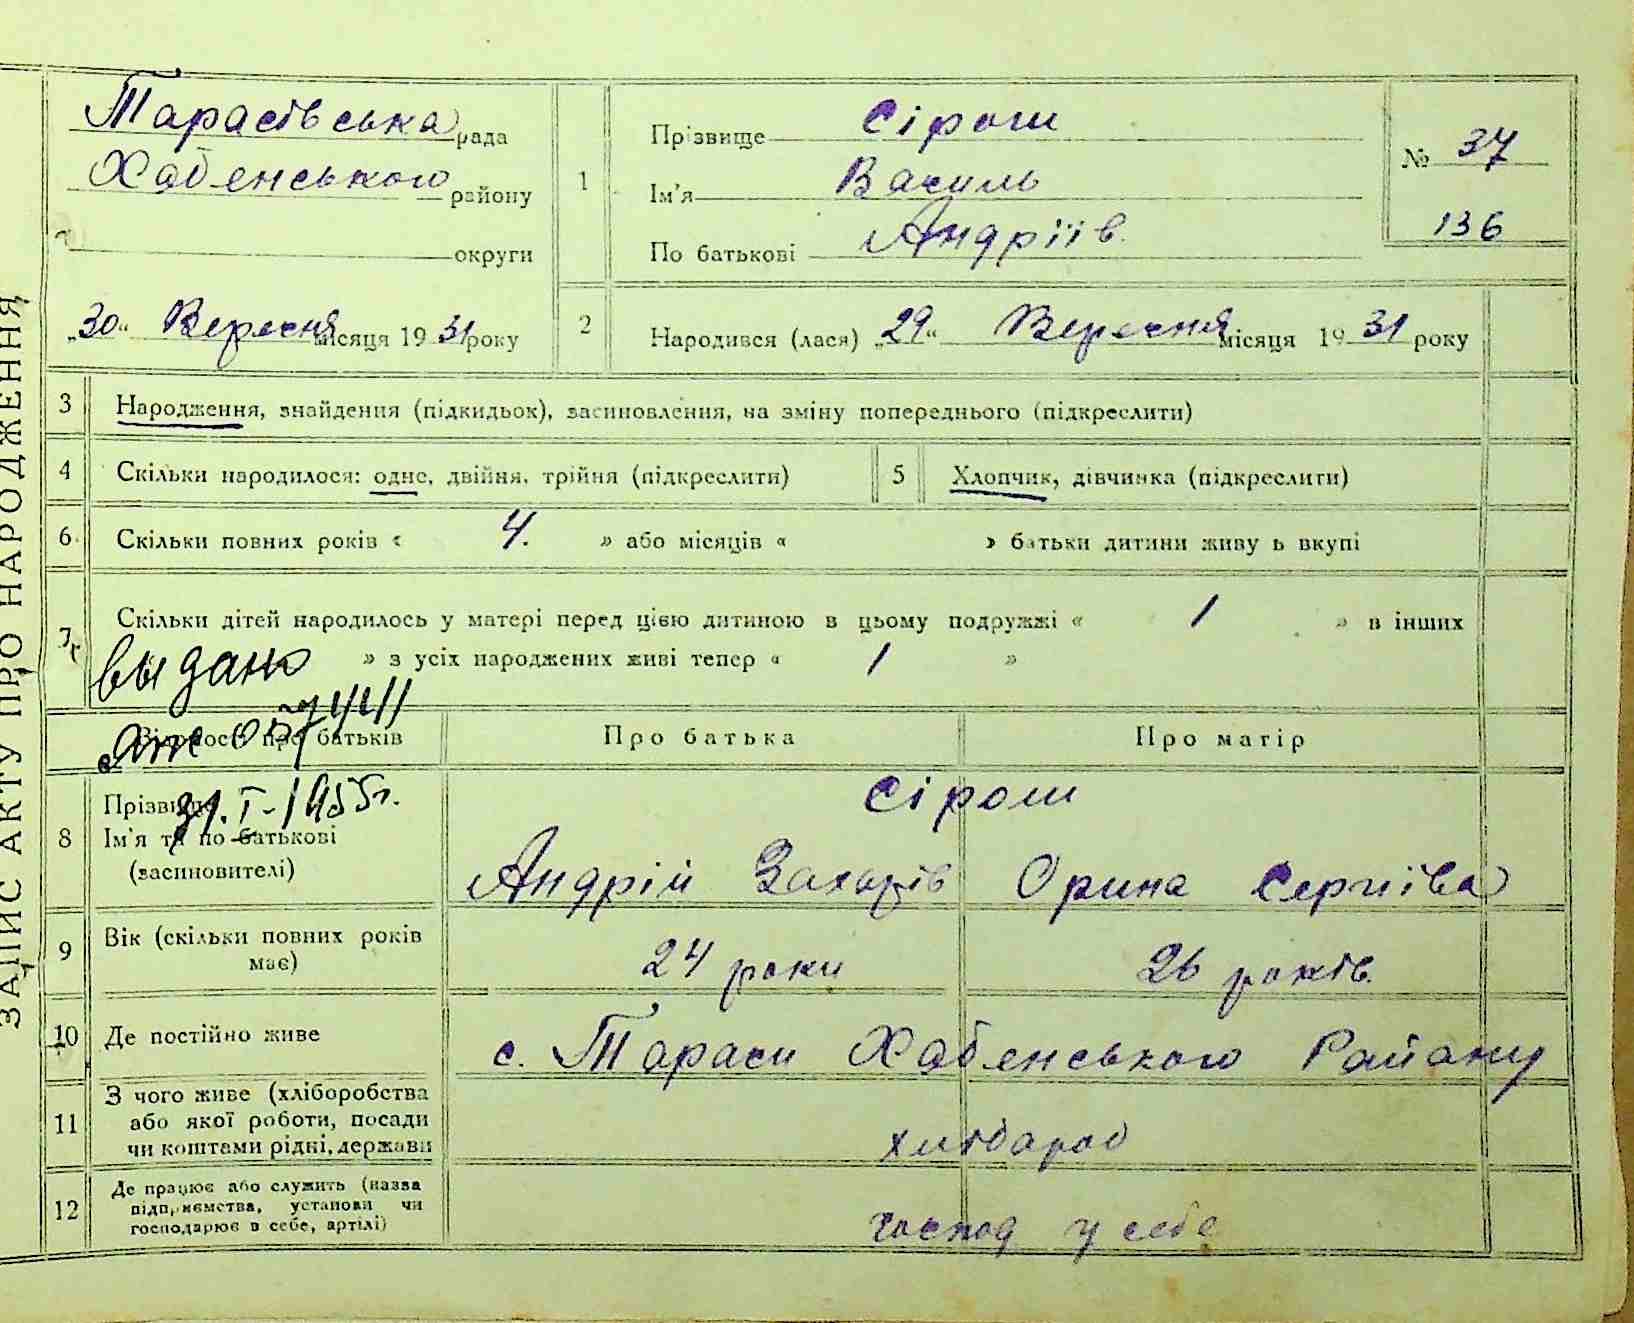 ЗАПИС АКТУ ПРО НАРОДЖЕННЯ
Тарасівська рада
Хабенського району
округи
„30“ Вересня місяця 1931 року
1
Прізвище Сірош
Ім'я Василь
По батькові Андріїв.
№ 37
136
2
Народився (лася) „29“ Вересня місяця 1931 року
3 Народження, знайдення (підкидьок), засиновлення, на зміну попереднього (підкреслити)
4 Скільки народилося: одне, двійня, трійня (підкреслити)
5 Хлопчик, дівчинка (підкреслити)
6. Скільки повних років « 4. » або місяців « » батьки дитини живуть вкупі
7 Скільки дітей народилось у матері перед цією дитиною в цьому подружжі « 1 » в інших
» з усіх народжених живі тепер « 1 »
выдано
31.I-1955г.
Відомості про батьків
Про батька
Про матір
8 Прізвище
Ім'я та по батькові
(засиновителі)
Сірош
Андрій Захарів
Орина Сергіїва
9 Вік (скільки повних років
має)
24 роки
26 років.
10 Де постійно живе
с. Тараси Хабенського Району
11 З чого живе (хліборобства
або якої роботи, посади
чи коштами рідні, держави
хлібороб
12 Де працює або служить (назва
підприємства, установи чи
господарює в себе, артілі)
господ у себе